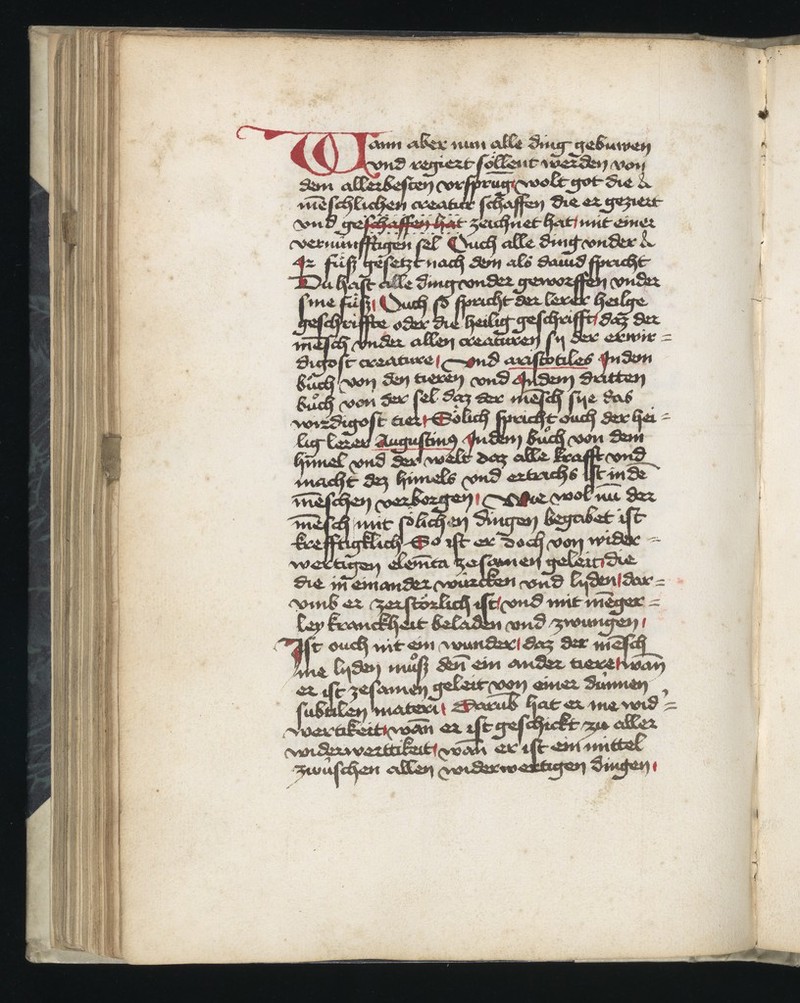 Wann aber nun alle ding gebuwen
vnd regiert söllent werden von
dem allerbesten vrsprūg wolt got die
mēschlichen creatur schaffen die er geziert
vnd geschaffen hat zeichnet hat mit einer
vernunfftigen sel Ouch alle ding vnder
Ir füß gesetzt nach dem als dauid spricht
Du hast alle ding vnder geworffen vnder
sine füß Ouch so spricht der lerer heilge
geschriffte oder die heilig geschrifft daz der
mēsch vnder allen creaturen sy der erwir=
digost creature Vnd aristotiles Indem
bůch von den tieren vnd Indem dritten
bůch von der sel daz der mēsch sye das
wirdigost tier Sölich spricht ouch der hei=
lig lerer Augustinꝰ Indem bůch von dem
himel vnd der welt daz alle krafft vnd
macht dez himels vnd ertrichs Ist in dē
mēschen verborgen Wie wol nū der
mēsch mit sölichen dingen begabet ist
krefftigklich So ist er doch von wider=
wertigen elemēta zesamen geleit die
die in einander würcken vnd lyden dar=
vmb er zerstörlich ist vnd mit mēger=
ley kranckheit beladen vnd zwungen
Ist ouch nit ein wunder daz der mēsch
me lyden můß denn ein ander tiere wān
er ist zesamen geleit von einer dünnen
subtilen materi Darūb hat er me wid=
wertikeit wān er ist geschickt zu aller
widerwerttikeit wān er ist ein mittel
zwüschen allen widerwertigen dingen